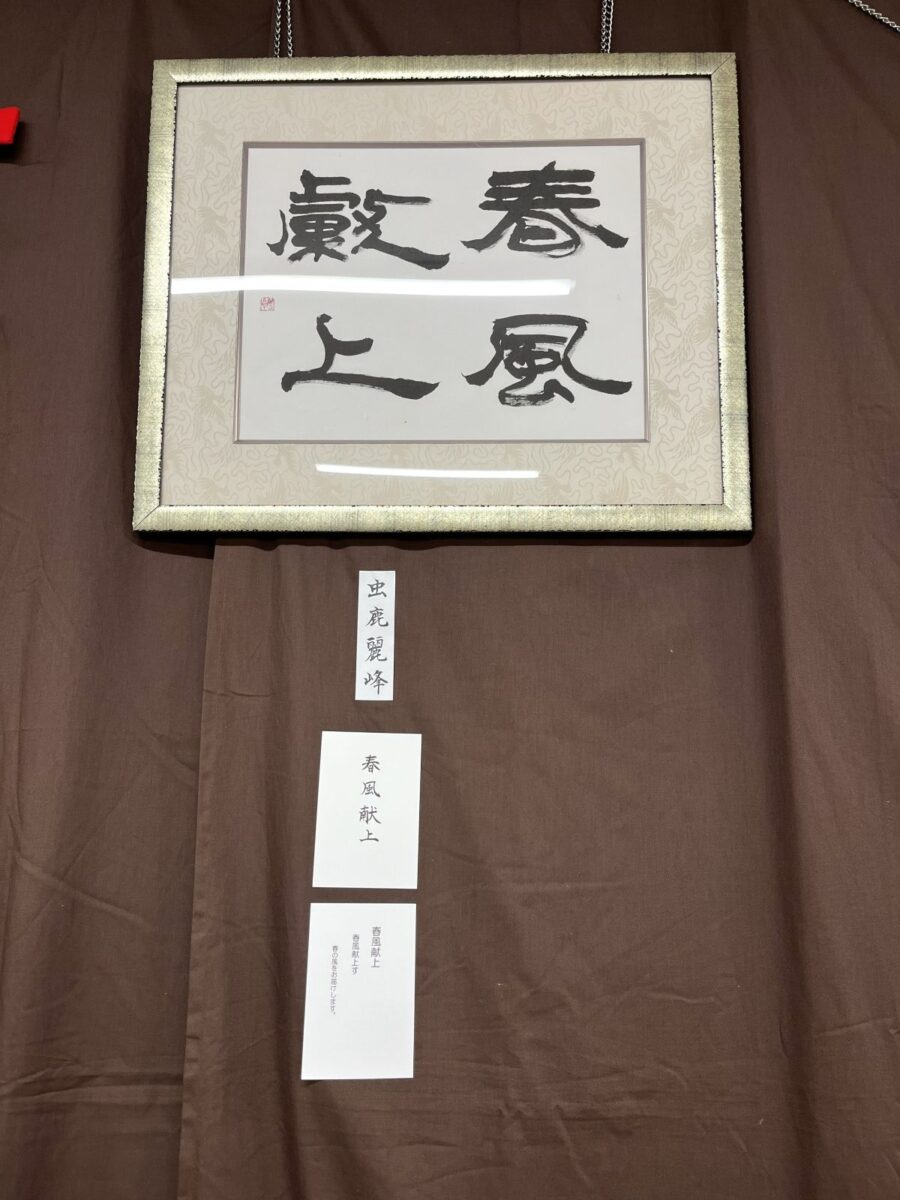 春風
獻上
虫鹿麗峰
春風献上
春風献上
春風献上す
春の風をお届けします。